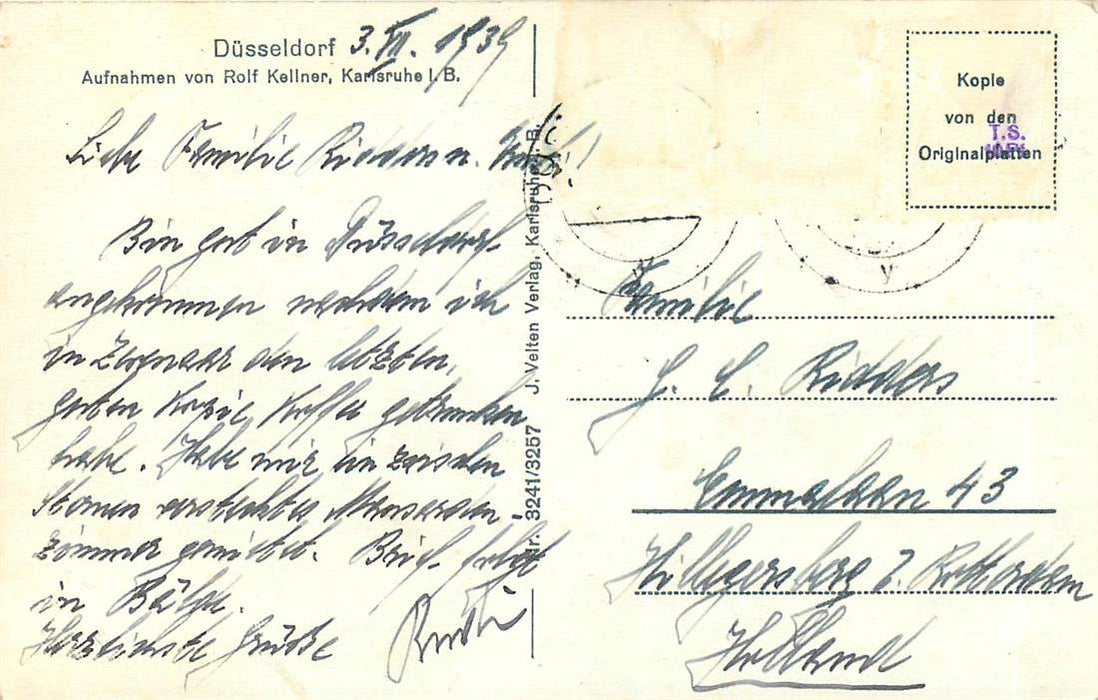 Düsseldorf 3. VII. 1939
Aufnahmen von Rolf Kellner, Karlsruhe i. B.
Liebe Familie Ridders u.
Bin gut in Düsseldorf
angekommen nachdem ich
in Zevenaar den letzten,
guten Kaffee getrunken
habe. Habe mir ein zwischen
Sternen verstecktes Mansarden-
zimmer gemietet. Brief folgt
in Bälde.
Herzlichste Grüße
Nr. 3241/3257 J. Velten Verlag, Karlsruhe i. B.
Kopie
von den
Originalplatten
T.S.
Familie
G. E. Ridders
Emmalaan 43
Hillegersberg b. Rotterdam
Holland